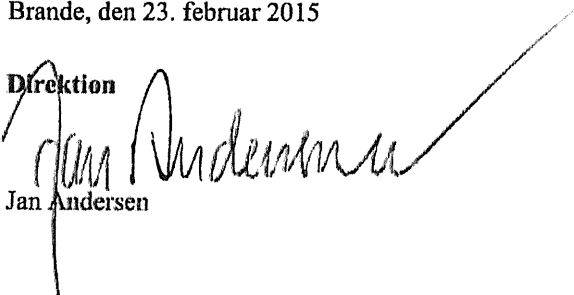 Brande, den 23. februar 2015
Direktion
Jan Andersen
Jan Andersen